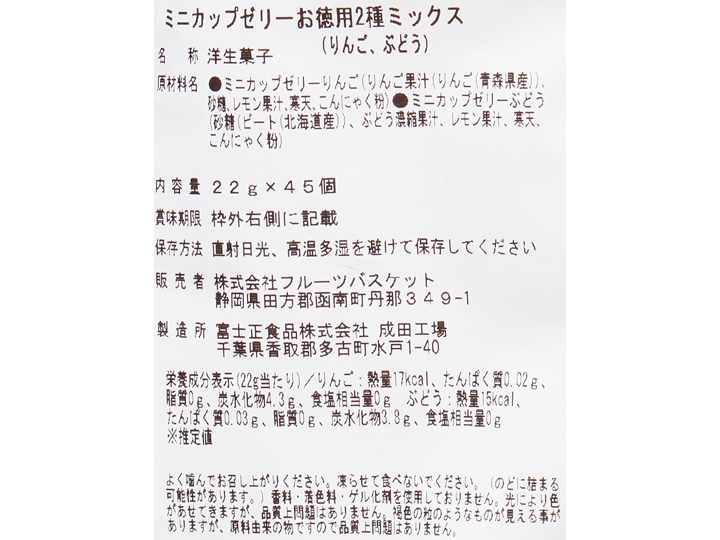 ミニカップゼリーお徳用2種ミックス
(りんご、ぶどう)
名　称 洋生菓子
原材料名 ●ミニカップゼリーりんご(りんご果汁(りんご(青森県産))、
砂糖、レモン果汁、寒天、こんにゃく粉)●ミニカップゼリーぶどう
(砂糖(ビート(北海道産))、ぶどう濃縮果汁、レモン果汁、寒天、
こんにゃく粉)
内容量 22g×45個
賞味期限 枠外右側に記載
保存方法 直射日光、高温多湿を避けて保存してください
販売者 株式会社フルーツバスケット
静岡県田方郡函南町丹那349-1
製造所 富士正食品株式会社 成田工場
千葉県香取郡多古町水戸1-40
栄養成分表示(22g当たり)／りんご：熱量17kcal、たんぱく質0.02g、
脂質0g、炭水化物4.3g、食塩相当量0g　ぶどう：熱量15kcal、
たんぱく質0.03g、脂質0g、炭水化物3.8g、食塩相当量0g
※推定値
よく噛んでお召し上がりください。凍らせて食べないでください。(のどに詰まる
可能性があります。)香料・着色料・ゲル化剤を使用しておりません。光により色
があせてきますが、品質上問題はありません。褐色の粒のようなものが見える事が
ありますが、原料由来の物ですので品質上問題はありません。